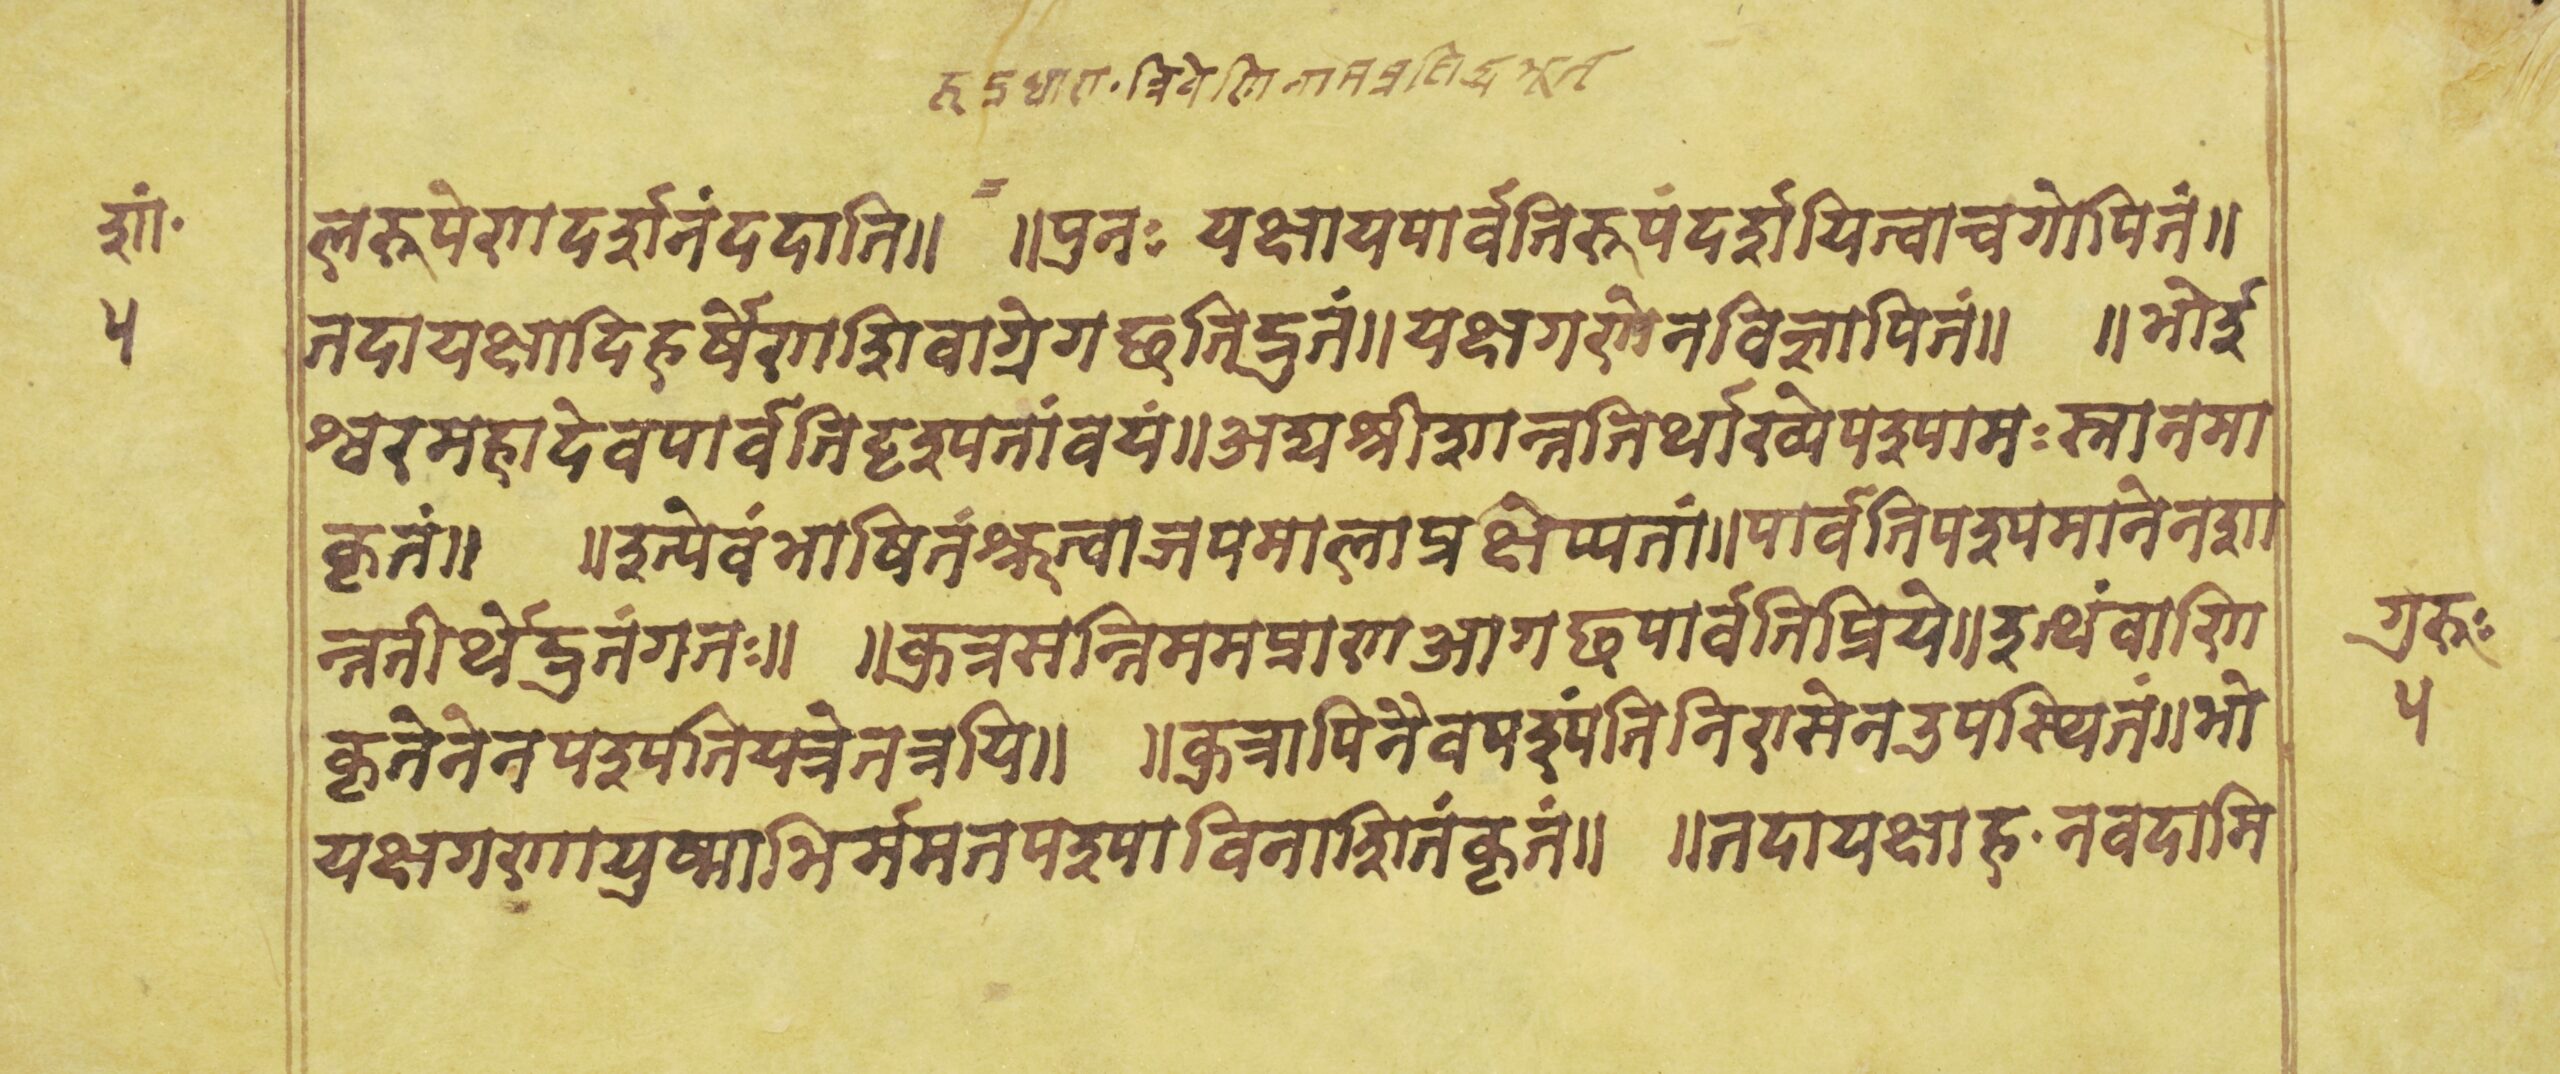 शां·
५
लरूपेणदर्शनंददाति॥ ॥पुनः यक्षायपार्वतिरूपंदर्शयित्वाचगोपितं॥
तदायक्षादिहर्षेणशिवाग्रेगछतिद्रुतं॥यक्षगणेनविज्ञापितं॥ ॥भोई
श्वरमहादेवपार्वतिदृश्यतांवयं॥अद्यश्रीशान्ततिर्थाख्येपश्यामःस्नानमा
कृतं॥ ॥इत्येवंभाषितंश्रुत्वाजपमालाप्रक्षेप्यतां॥पार्वतिपश्यमानेनशा
न्ततीर्थेद्रुतंगतः॥ ॥कुत्रमन्तिममप्राणआगछपार्वतिप्रिये॥इत्थंवाणि
कृतेनेनपश्यतियत्नेनत्रयि॥ ॥कुत्रापिनैवपश्यंतिनिरासेनउपस्थितं॥भो
यक्षगणयुष्माभिर्ममतपश्याविनाशितंकृतं॥ ॥तदायक्षाह·नवदामि
गुरुः
५